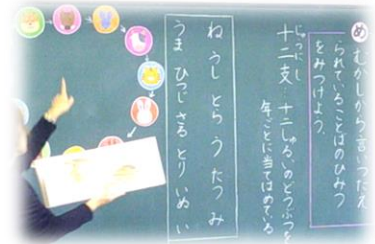 め
むかしから言いつたえ
られていることばのひみつ
をみつけよう。
じゅうにし
十二支…十二しゅるいのどうぶつを
年ごとに当てはめている
ね うし とら う たつ み
うま ひつじ さる とり いぬ い